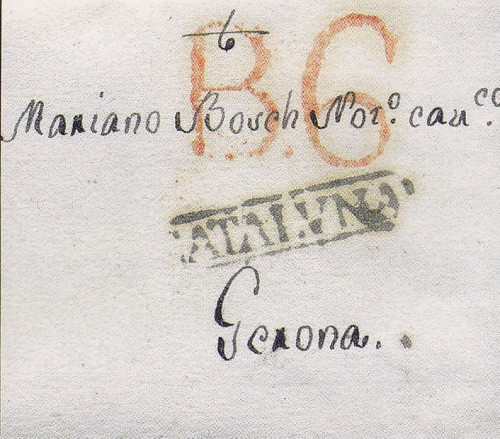 6
B.6
Mariano Bosch Not.º cau.co
CATALVÑA
Gerona..